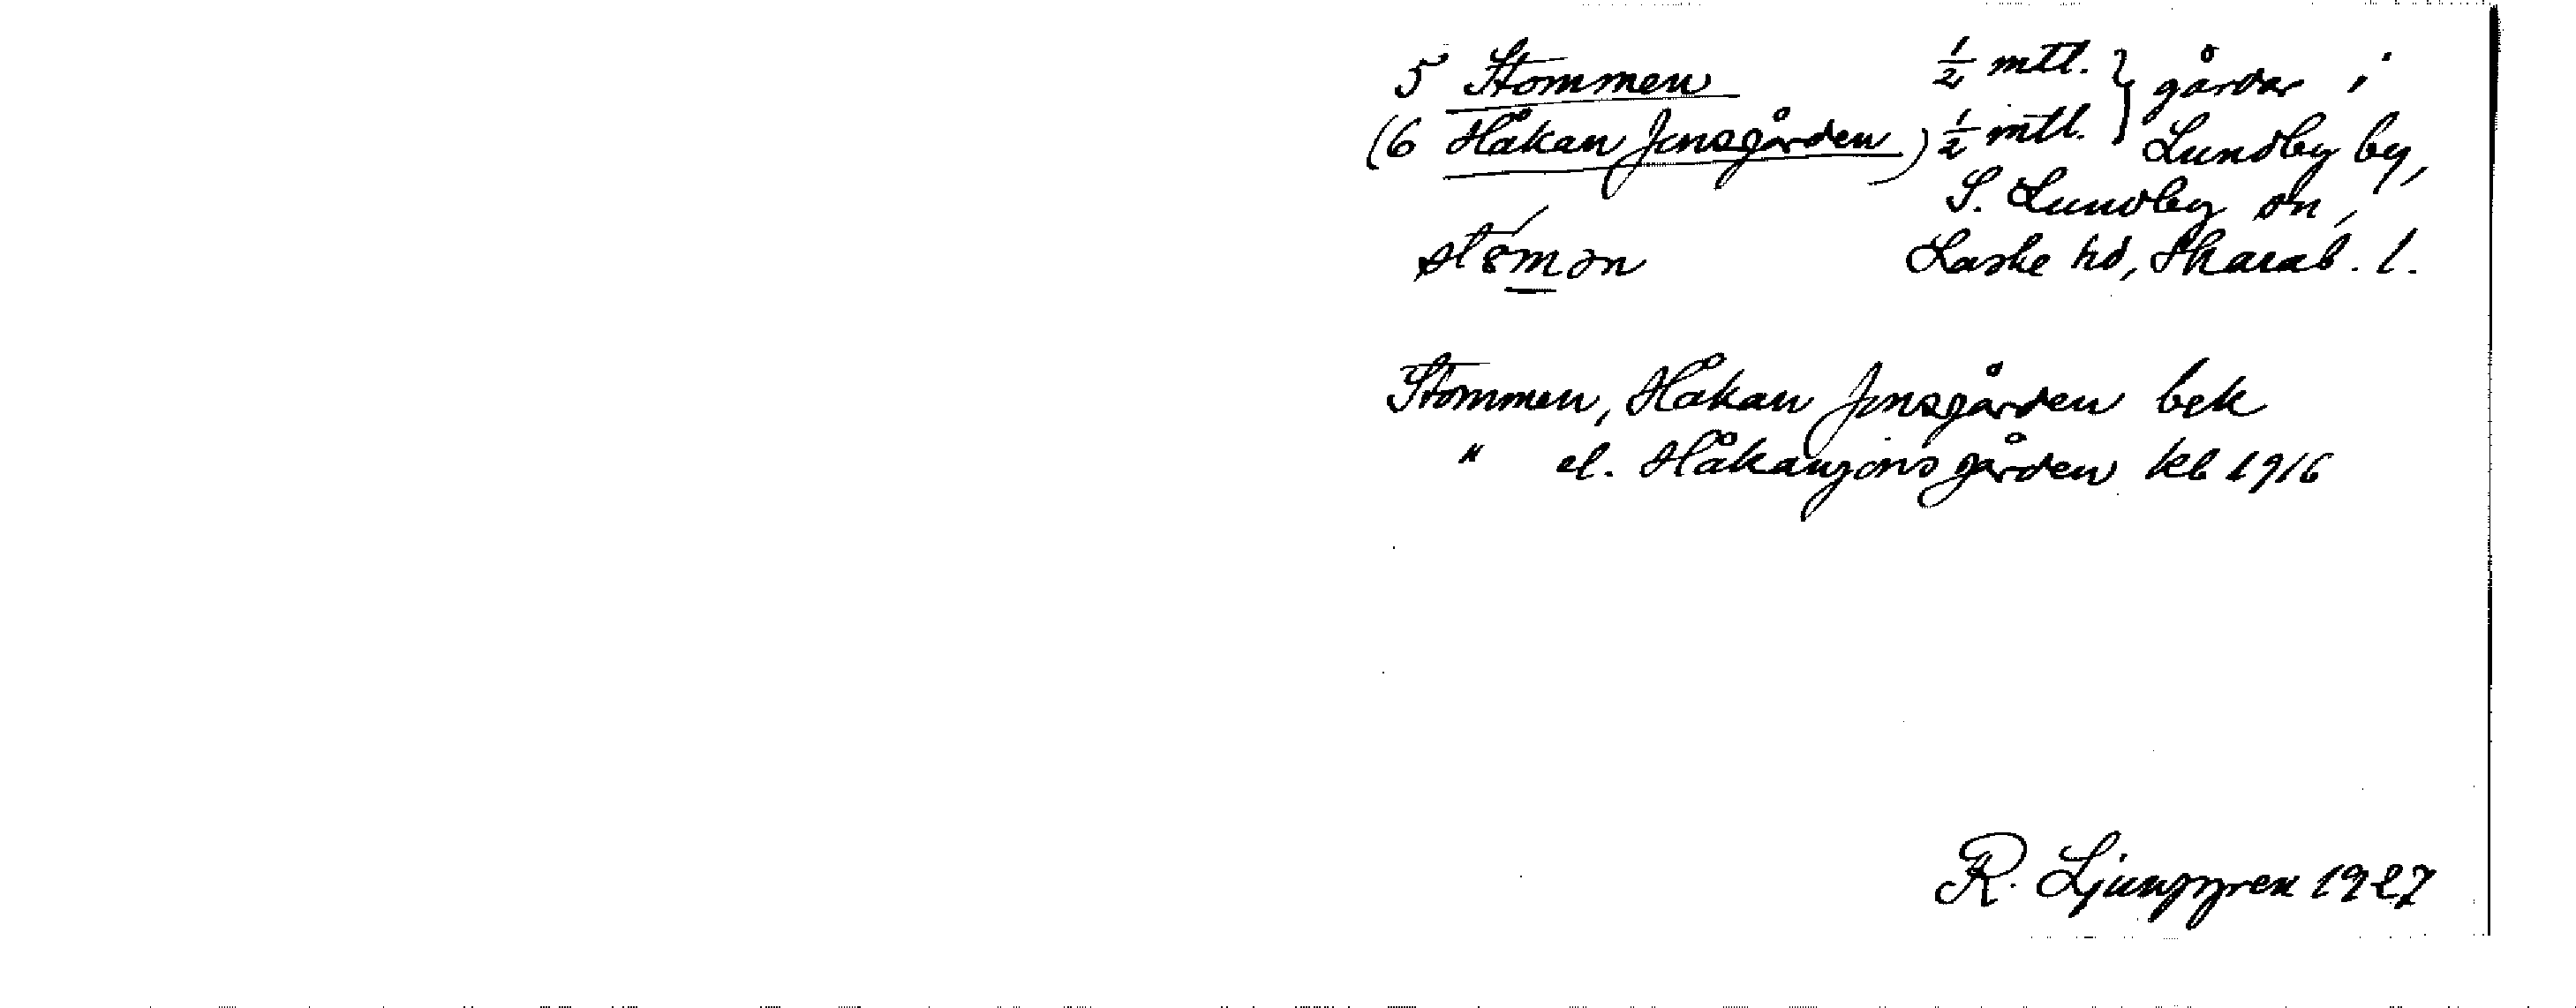 5 Stommen ½ mtl. } gårdar i
(6 Håkan Jonsgården) ½ mtl. } Lundby by,
S. Lundby sn,
Laske hd, Skarab. l.
Stommen, Håkan Jonsgården bek
" el. Håkanjonsgården kb 1916
R. Ljunggren 1927